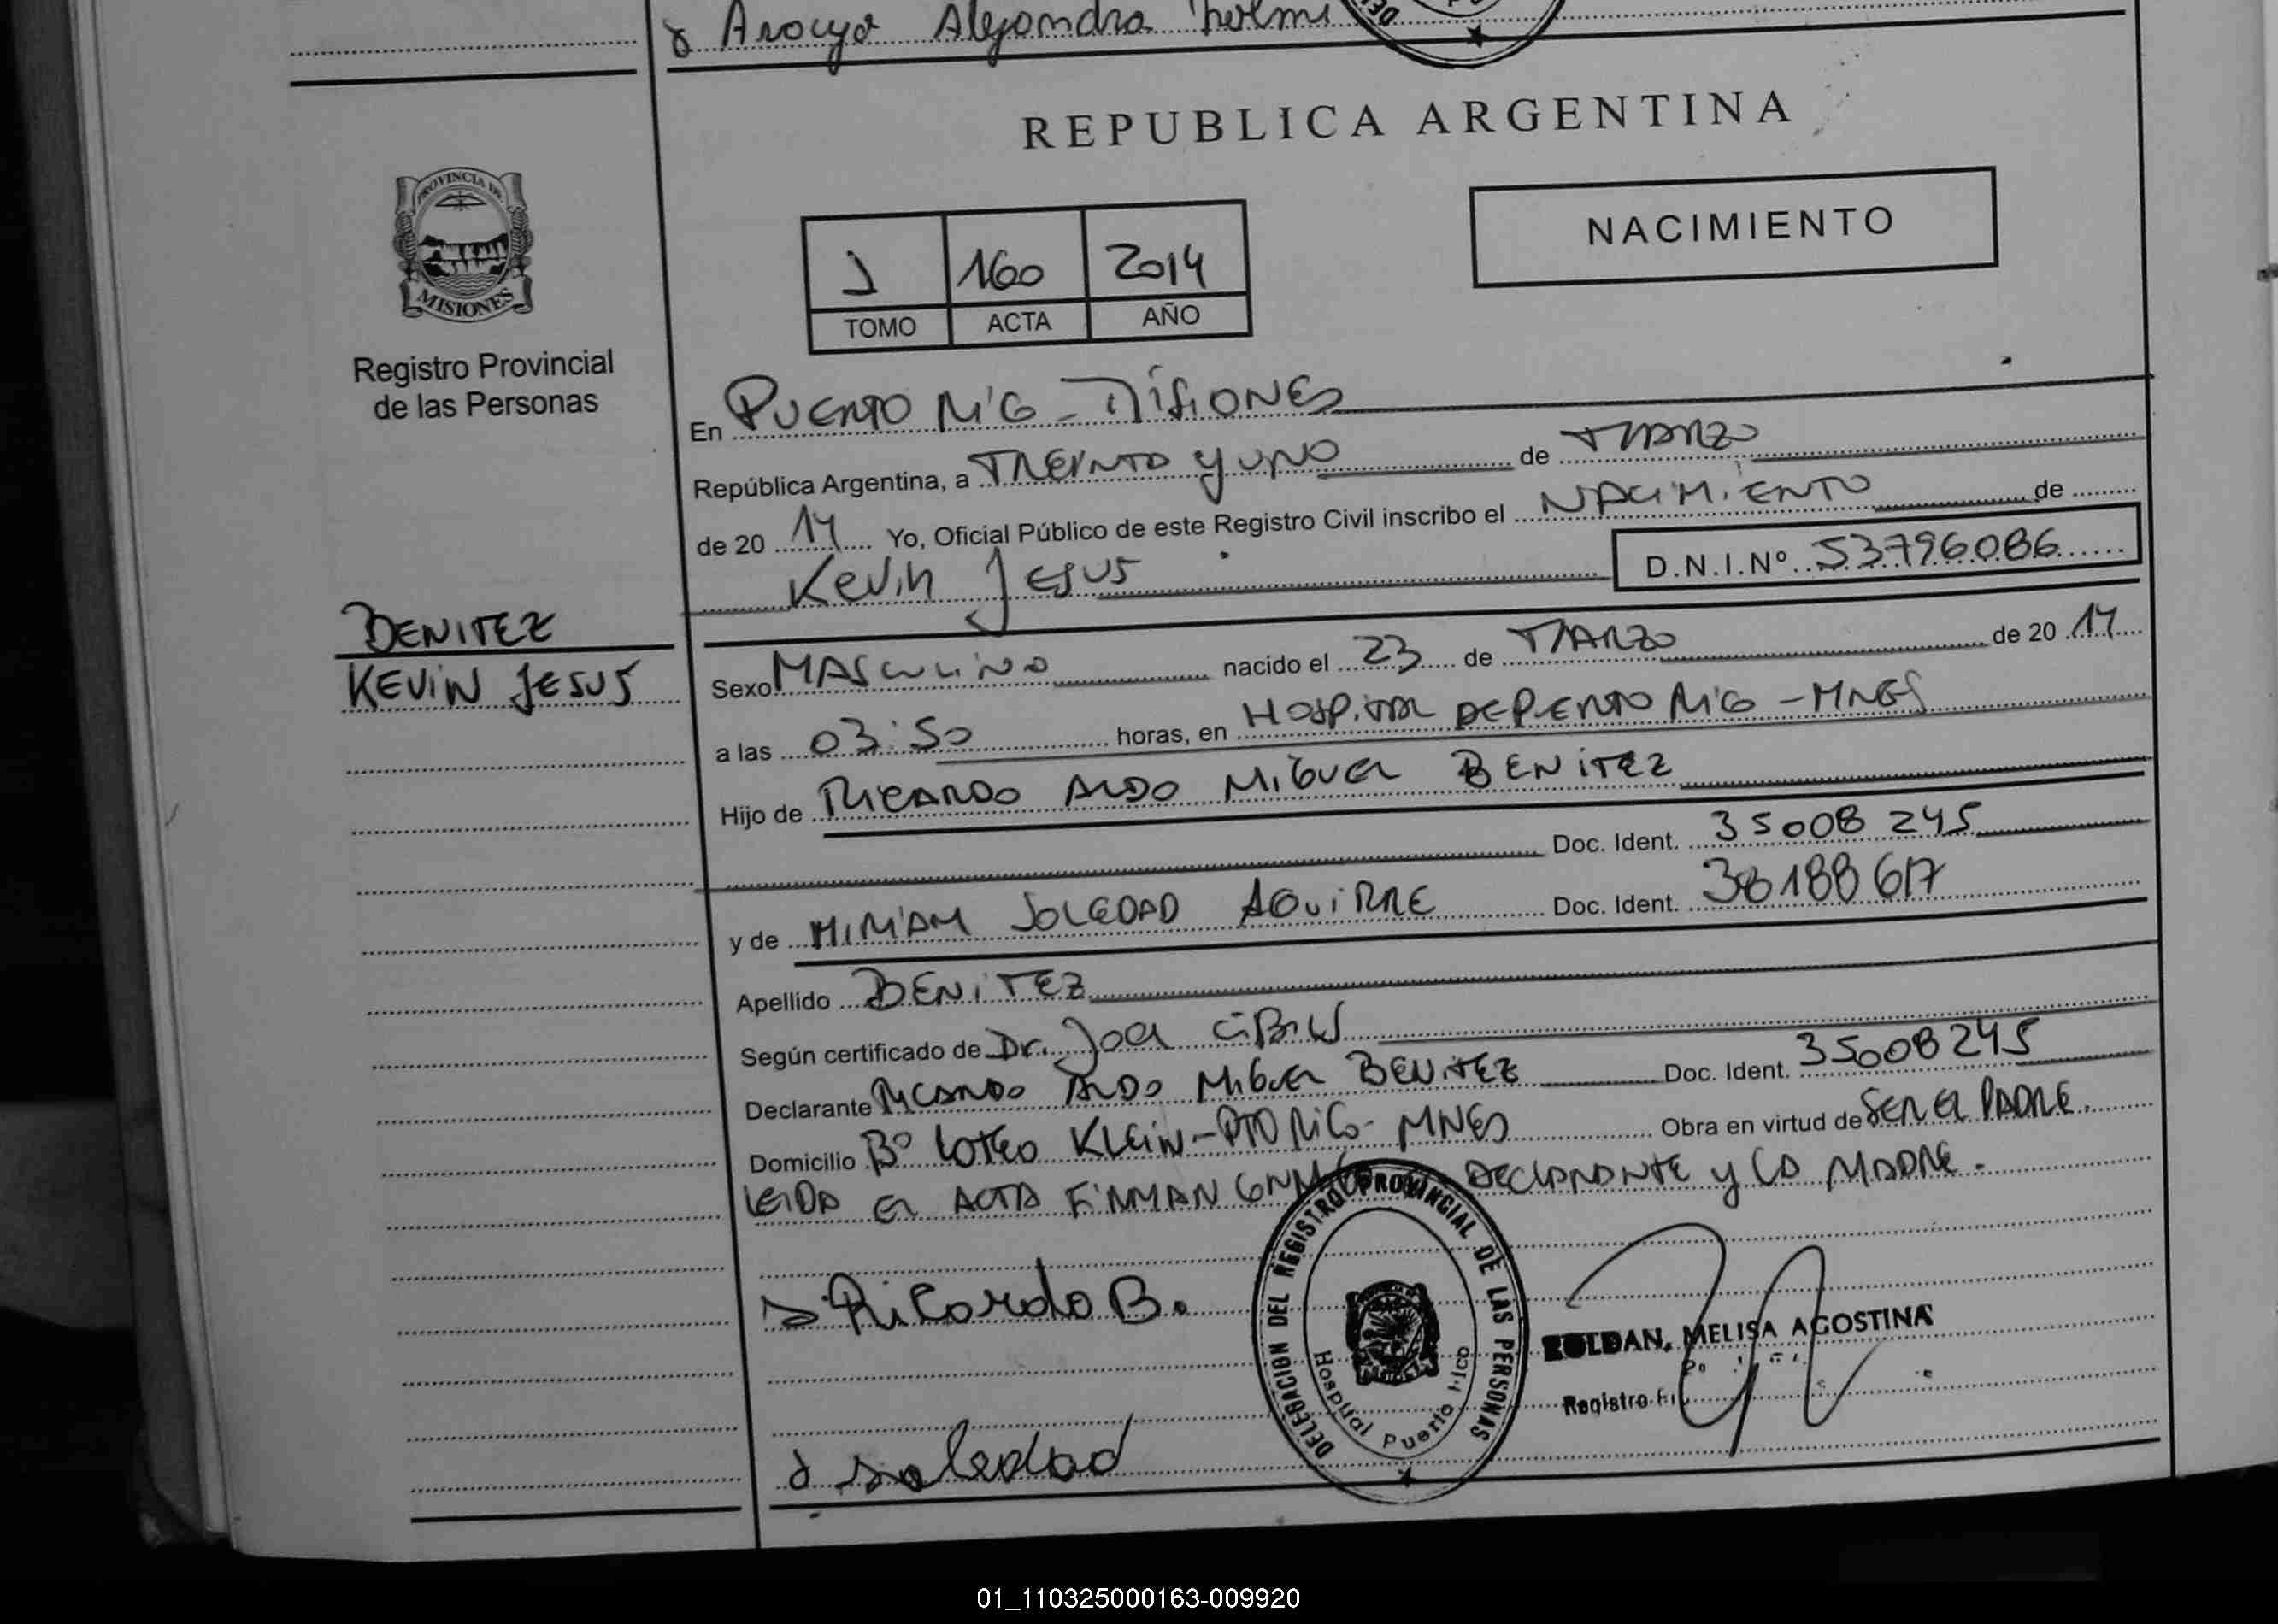 Aroyo Alejandra
REPUBLICA ARGENTINA
NACIMIENTO
PROVINCIA DE
MISIONES
Registro Provincial
de las Personas
1 160 2014
TOMO ACTA AÑO
En PUERTO RICO - MISIONES
República Argentina, a TREINTA y UNO de MARZO
de 20 14 Yo, Oficial Público de este Registro Civil inscribo el NACIMIENTO de
Kevin Jesus D.N.I.Nº 53796086
BENITEZ
KEVIN JESUS
Sexo MASCULINO nacido el 23 de MARZO de 20 14
a las 03:50 horas, en HOSPITAL DE PUERTO RICO - MNES
Hijo de RICARDO ALDO MIGUEL BENITEZ
Doc. Ident. 35008245
y de MIRIAM SOLEDAD AGUIRRE Doc. Ident. 38188617
Apellido BENITEZ
Según certificado de Dr. Joel
Declarante RICARDO ALDO MIGUEL BENITEZ Doc. Ident. 35008245
Domicilio Bº LOTEO KLEIN - PTO RICO - MNES Obra en virtud de SER EL PADRE.
LEIDA EL ACTA FIRMAN DECLARANTE y LA MADRE.
Ricardo B.
DELEGACION DEL REGISTRO PROVINCIAL DE LAS PERSONAS
Hospital Puerto Rico
ROLDAN, MELISA AGOSTINA
Registro
Soledad
01_110325000163-009920